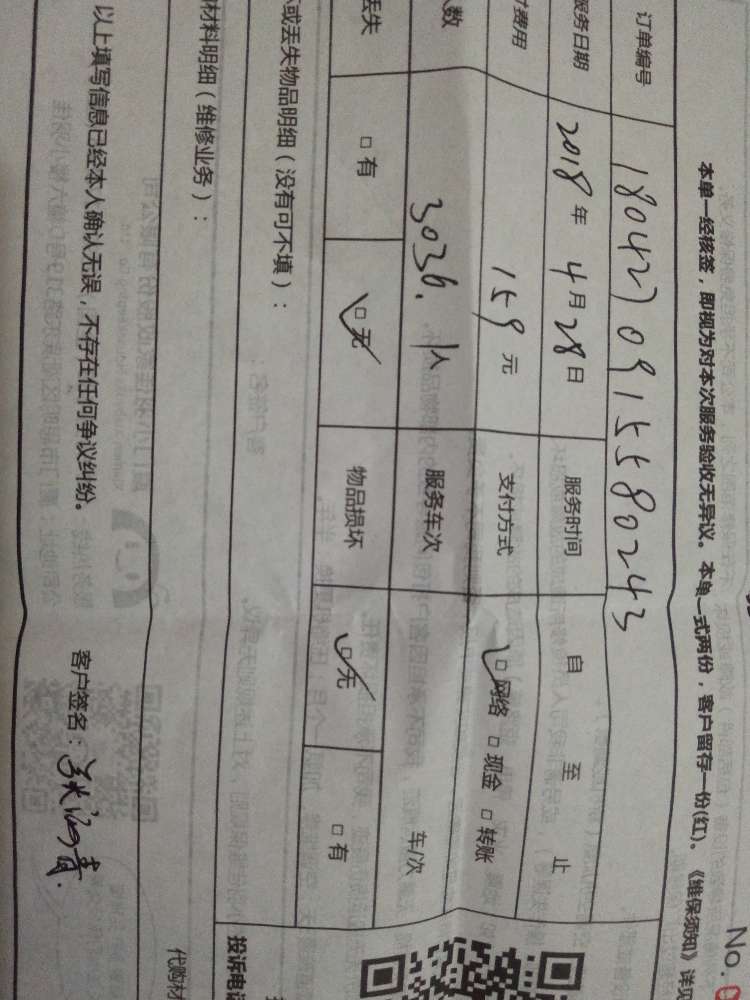 No.
本单一经核签，即视为对本次服务验收无异议。本单一式两份，客户留存一份(红)。《维保须知》详见
订单编号 1804270915580243
服务日期 2018年4月28日 服务时间 自 至 止
费用 159元 支付方式 ☑网络 □现金 □转账
人数 3036. 1人 服务车次 车/次
丢失 □有 ☑无 物品损坏 ☑无 □有
或丢失物品明细（没有可不填）：
材料明细（维修业务）：
投诉电话
代购材
以上填写信息已经本人确认无误，不存在任何争议纠纷。 客户签名：